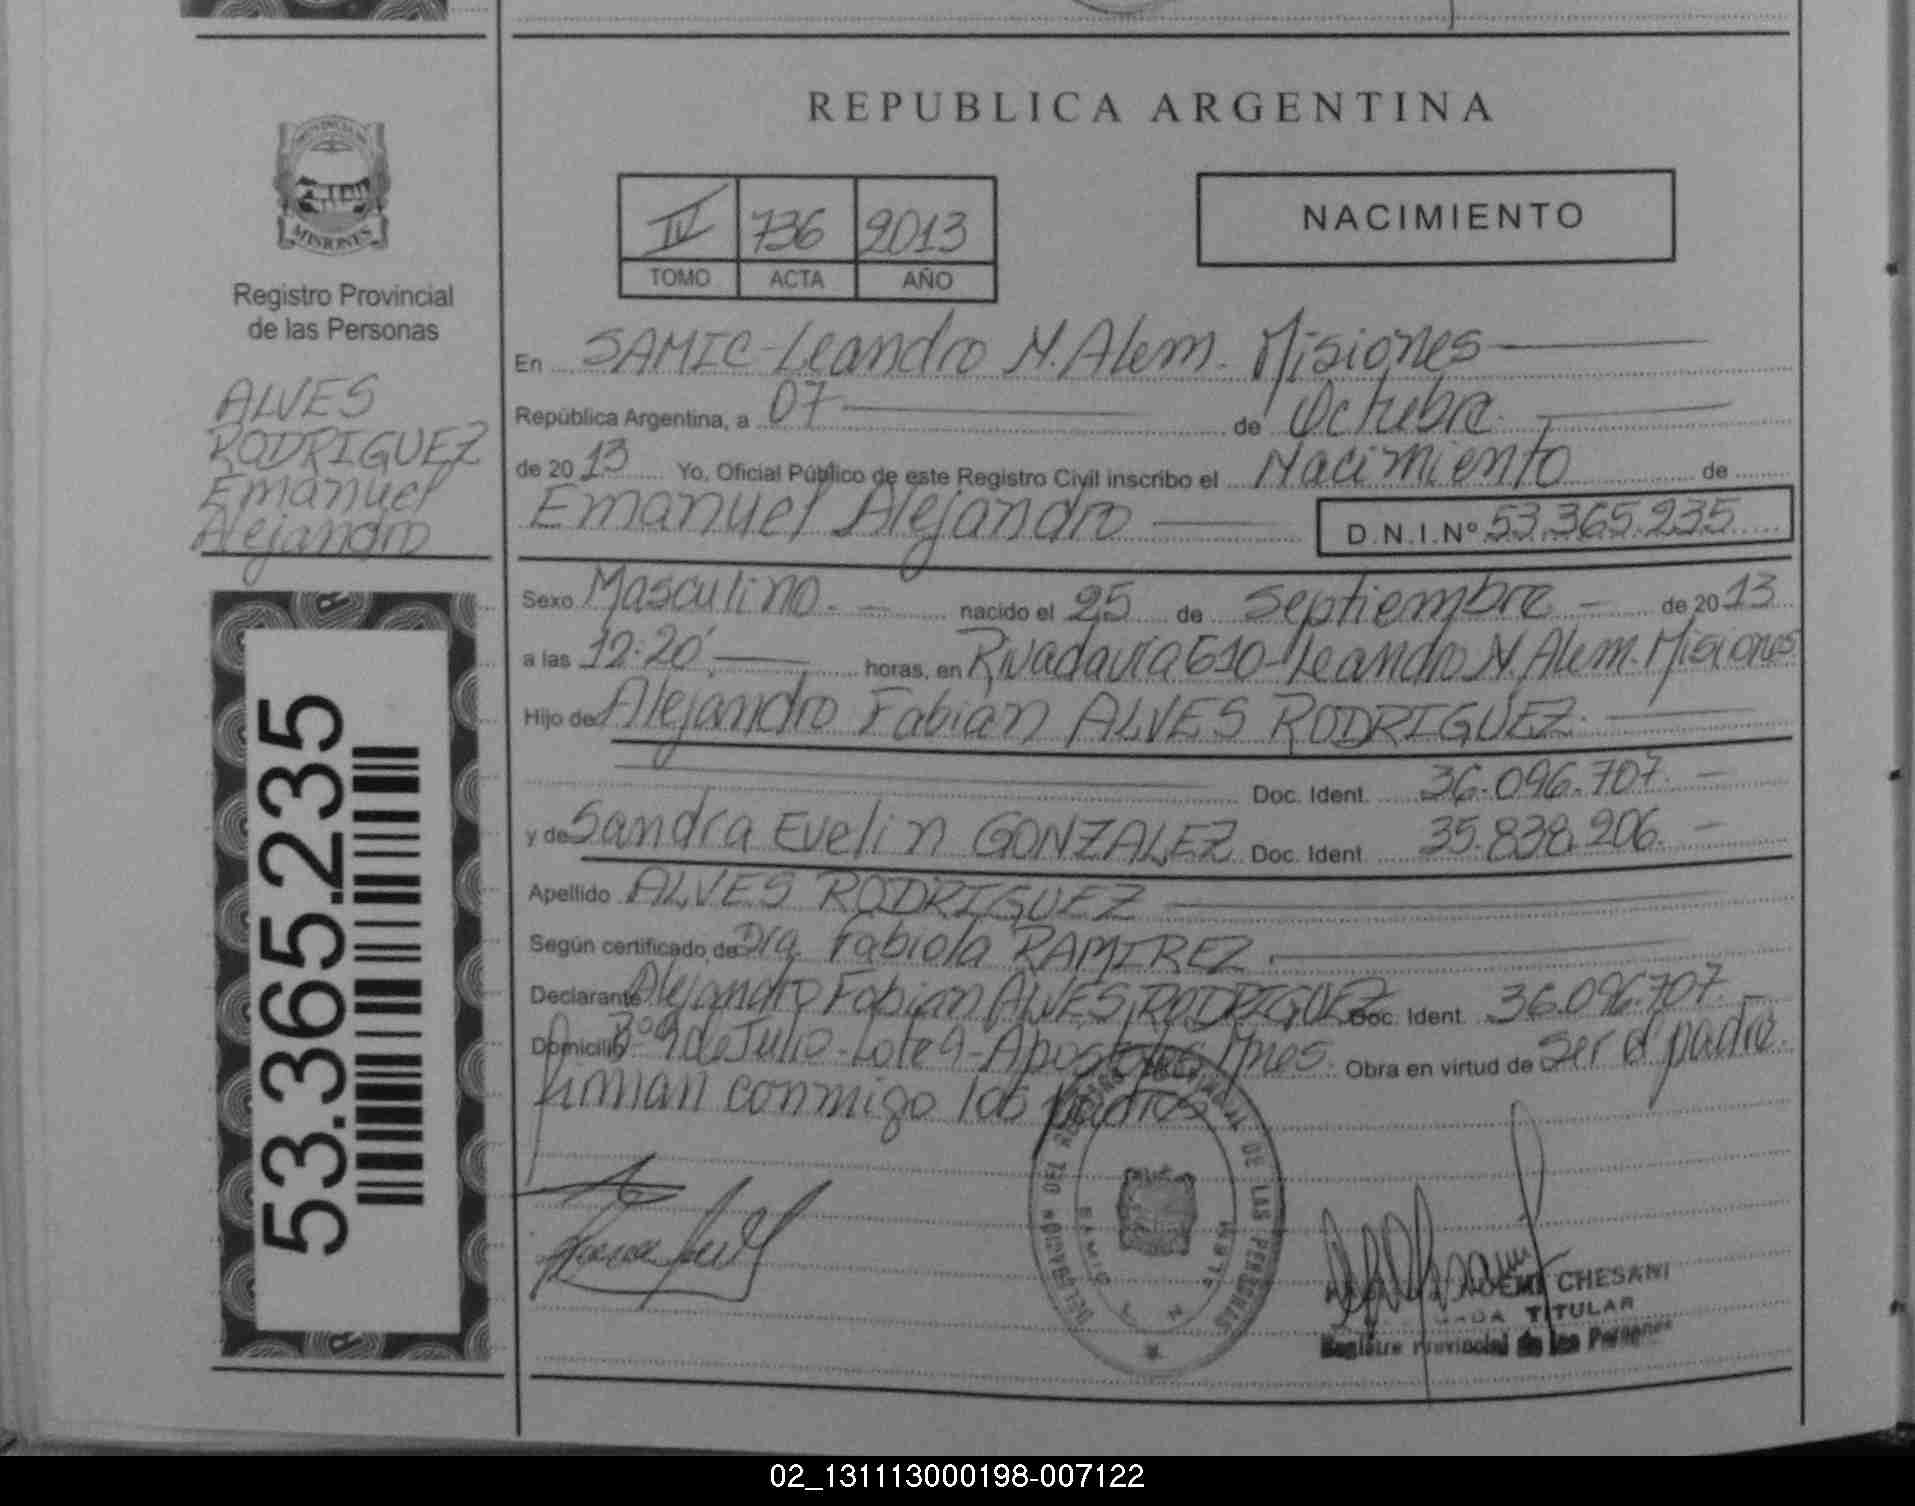 REPUBLICA ARGENTINA
PROVINCIA DE
MISIONES
Registro Provincial
de las Personas
ALVES
RODRIGUEZ
Emanuel
Alejandro
IV 736 2013
TOMO ACTA AÑO
NACIMIENTO
En SAMIC-Leandro N. Alem. Misiones
República Argentina, a 07 de Octubre.
de 2013 Yo, Oficial Público de este Registro Civil inscribo el Nacimiento de
Emanuel Alejandro D.N.I.Nº 53.365.235
Sexo Masculino. nacido el 25 de Septiembre de 2013
a las 12:20 horas, en Rivadavia 610-Leandro N. Alem. Misiones
Hijo de Alejandro Fabian ALVES RODRIGUEZ.
Doc. Ident. 36.096.707.
y de Sandra Evelin GONZALEZ Doc. Ident. 35.838.206.
Apellido ALVES RODRIGUEZ
Según certificado de Dra. Fabiola RAMIREZ.
Declarante Alejandro Fabian ALVES RODRIGUEZ Doc. Ident. 36.096.707.
Domicilio Bº 9 de Julio-Lote 9-Apostoles Mnes. Obra en virtud de Ser el padre.
firman conmigo los padres
53.365.235
REGISTRO PROVINCIAL DE LAS PERSONAS
DELEGACION DEL
SAMIC
NOEMI CHESANI
TITULAR
Registro Provincial de las Personas
02_131113000198-007122